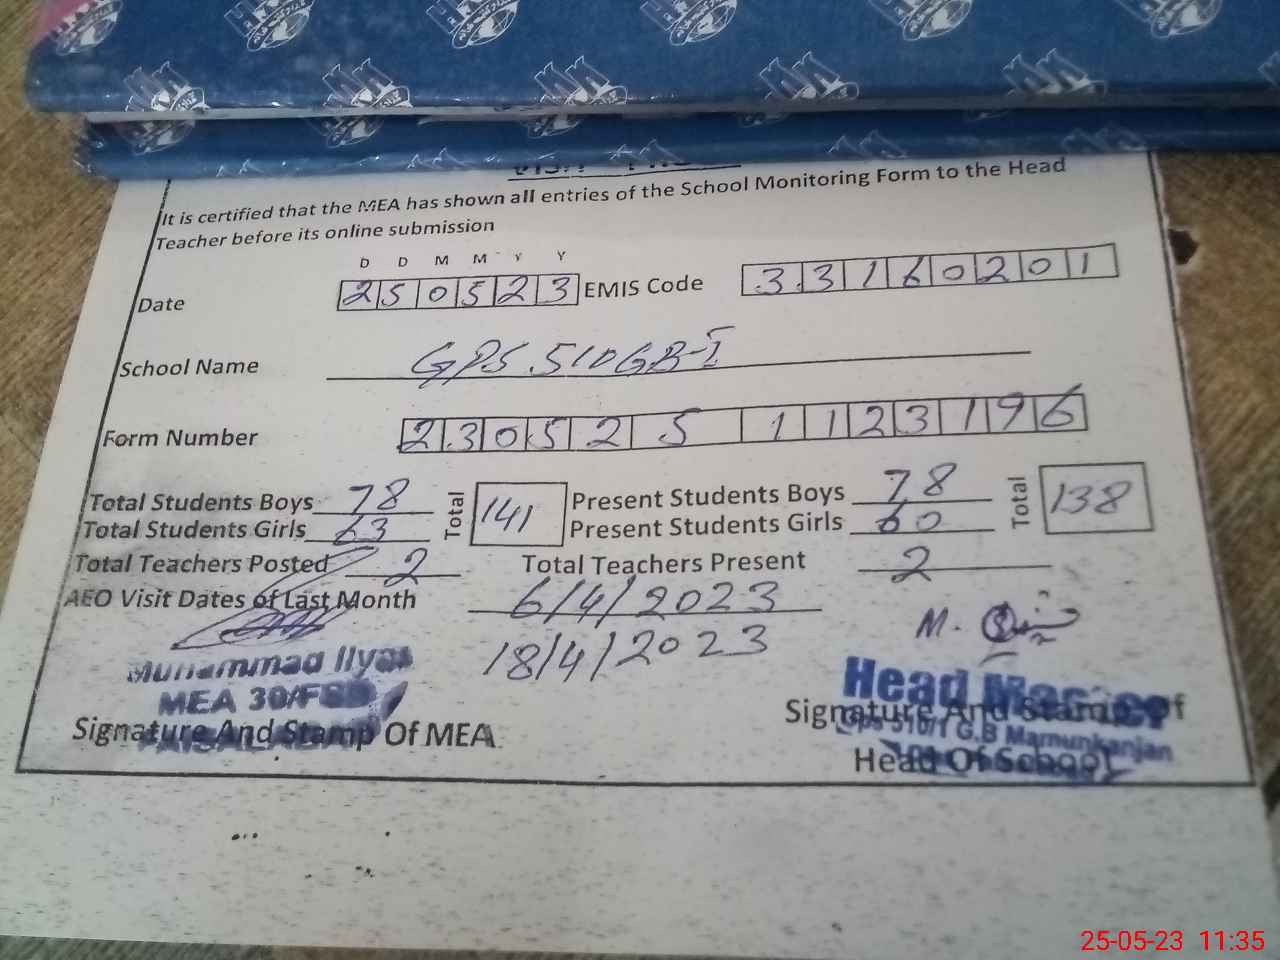 It is certified that the MEA has shown all entries of the School Monitoring Form to the Head
Teacher before its online submission
D D M M Y Y
Date 250523 EMIS Code 33160201
School Name GPS 510GB-I
Form Number 2305251123196
Total Students Boys 78 Total 141 Present Students Boys 78 Total 138
Total Students Girls 63 Present Students Girls 60
Total Teachers Posted 2 Total Teachers Present 2
AEO Visit Dates of Last Month 6/4/2023
18/4/2023
M.
Muhammad Ilyas
MEA 30/FSD
FAISALABAD
Signature And Stamp Of MEA
Head
Signature And Stamp Of
GPS 510/1 G.B Mamunkanjan
Head Of School
25-05-23 11:35